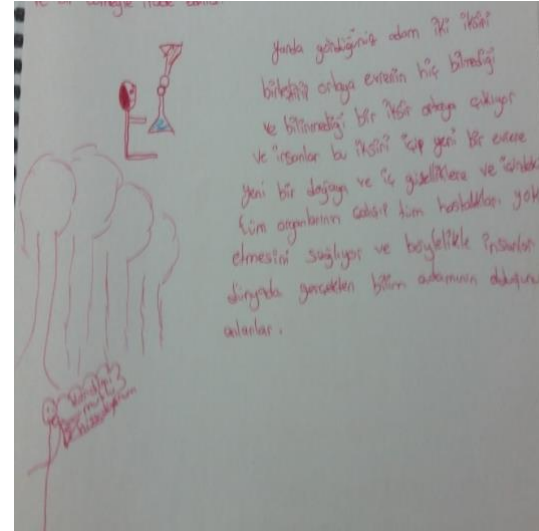 Yanda gördüğünüz adam iki iksiri
birleştirip ortaya evrenin hiç bilmediği
ve bilinmediği bir iksir ortaya çıkıyor
ve insanlar bu iksiri içip yeni bir evrene
yeni bir doğaya ve iç güzelliklere ve içindeki
tüm organlarının çalışıp tüm hastalıkları yok
etmesini sağlıyor ve böylelikle insanlar
dünyada gerçekten bilim adamının olduğunu
anlarlar.
Kendimi
mutlu
hissediyorum